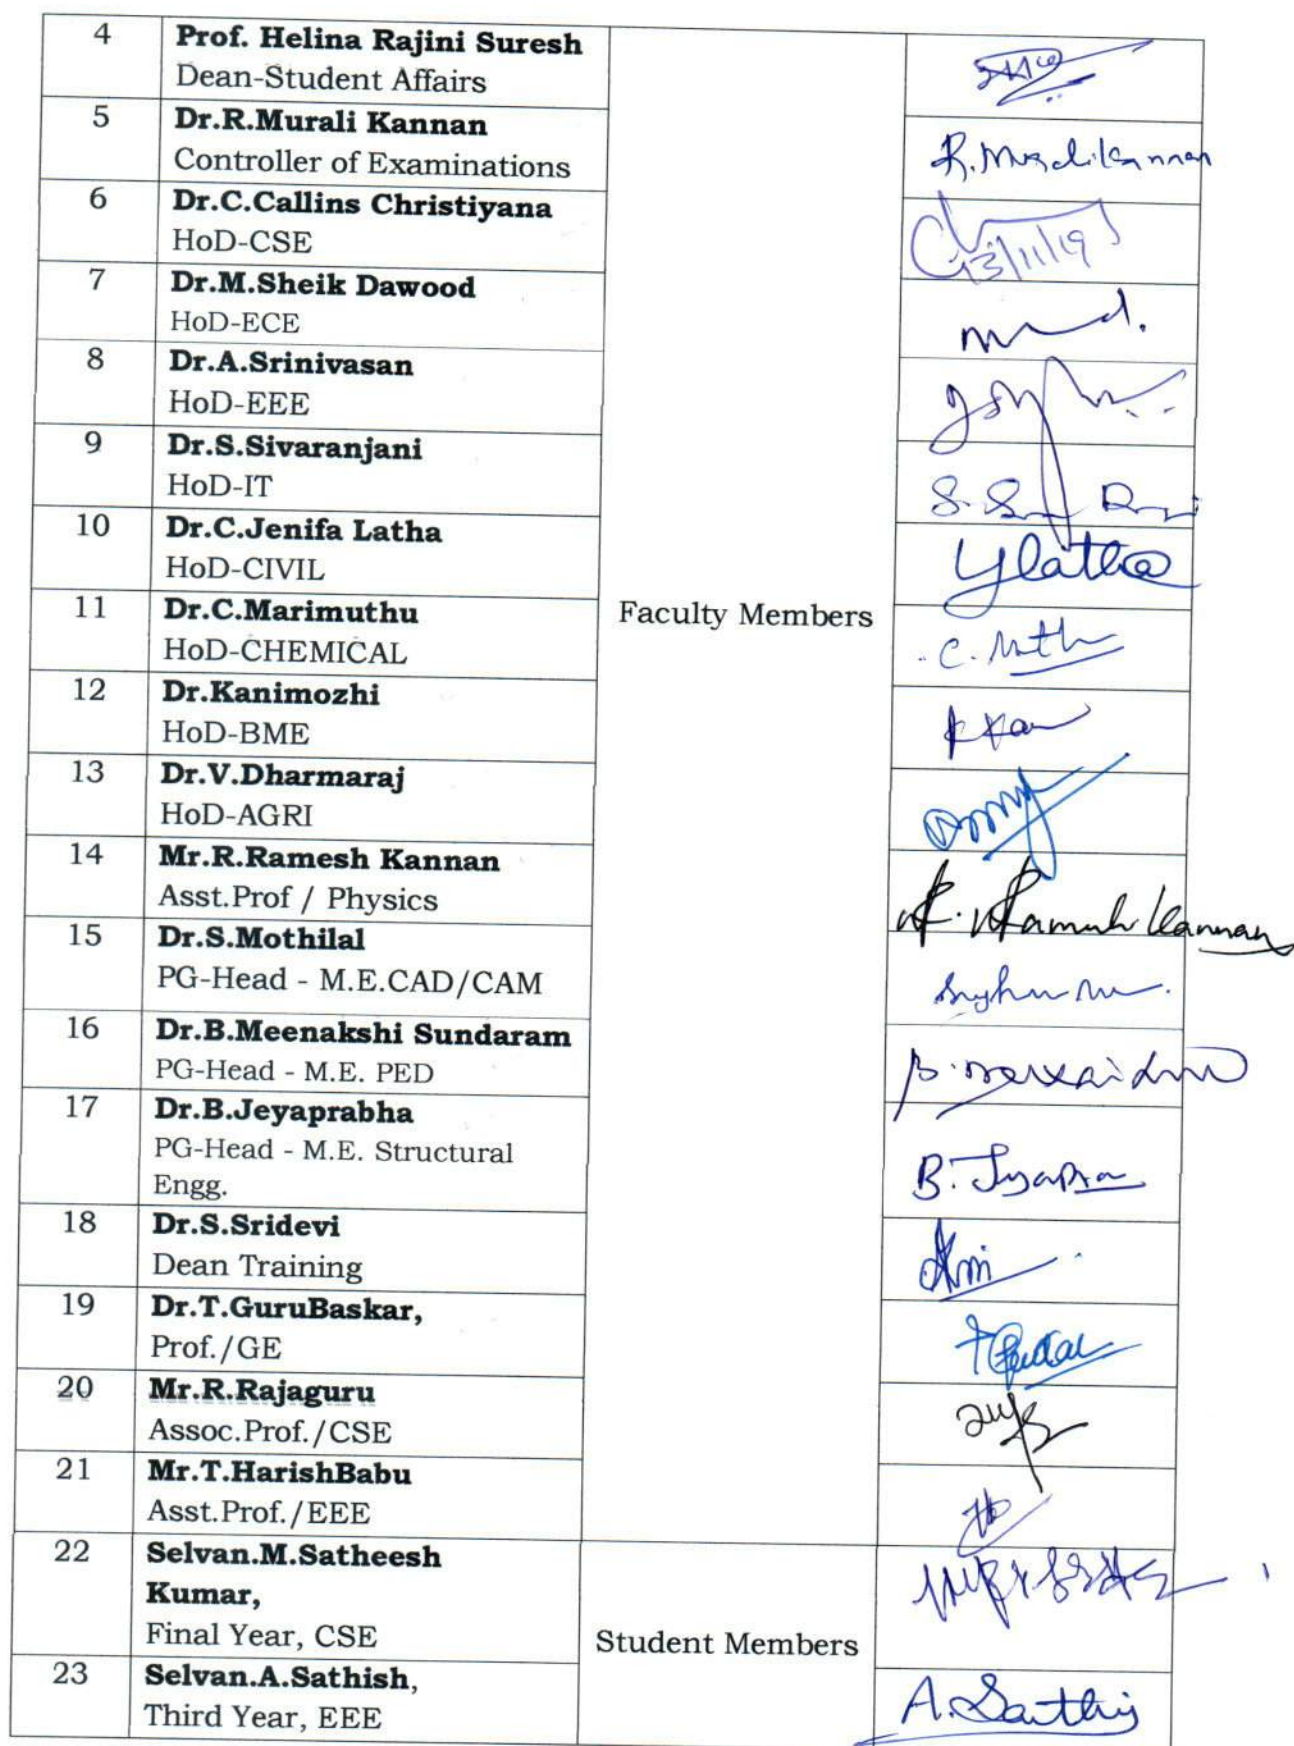 4 Prof. Helina Rajini Suresh
Dean-Student Affairs
5 Dr.R.Murali Kannan R.Muralikannan
Controller of Examinations
6 Dr.C.Callins Christiyana
HoD-CSE 13/11/19
7 Dr.M.Sheik Dawood
HoD-ECE
8 Dr.A.Srinivasan
HoD-EEE
9 Dr.S.Sivaranjani
HoD-IT
10 Dr.C.Jenifa Latha
HoD-CIVIL
11 Dr.C.Marimuthu Faculty Members
HoD-CHEMICAL
12 Dr.Kanimozhi
HoD-BME
13 Dr.V.Dharmaraj
HoD-AGRI
14 Mr.R.Ramesh Kannan
Asst.Prof / Physics
15 Dr.S.Mothilal
PG-Head - M.E.CAD/CAM
16 Dr.B.Meenakshi Sundaram
PG-Head - M.E. PED
17 Dr.B.Jeyaprabha
PG-Head - M.E. Structural
Engg.
18 Dr.S.Sridevi
Dean Training
19 Dr.T.GuruBaskar,
Prof./GE
20 Mr.R.Rajaguru
Assoc.Prof./CSE
21 Mr.T.HarishBabu
Asst.Prof./EEE
22 Selvan.M.Satheesh
Kumar,
Final Year, CSE Student Members
23 Selvan.A.Sathish,
Third Year, EEE A.Sathis